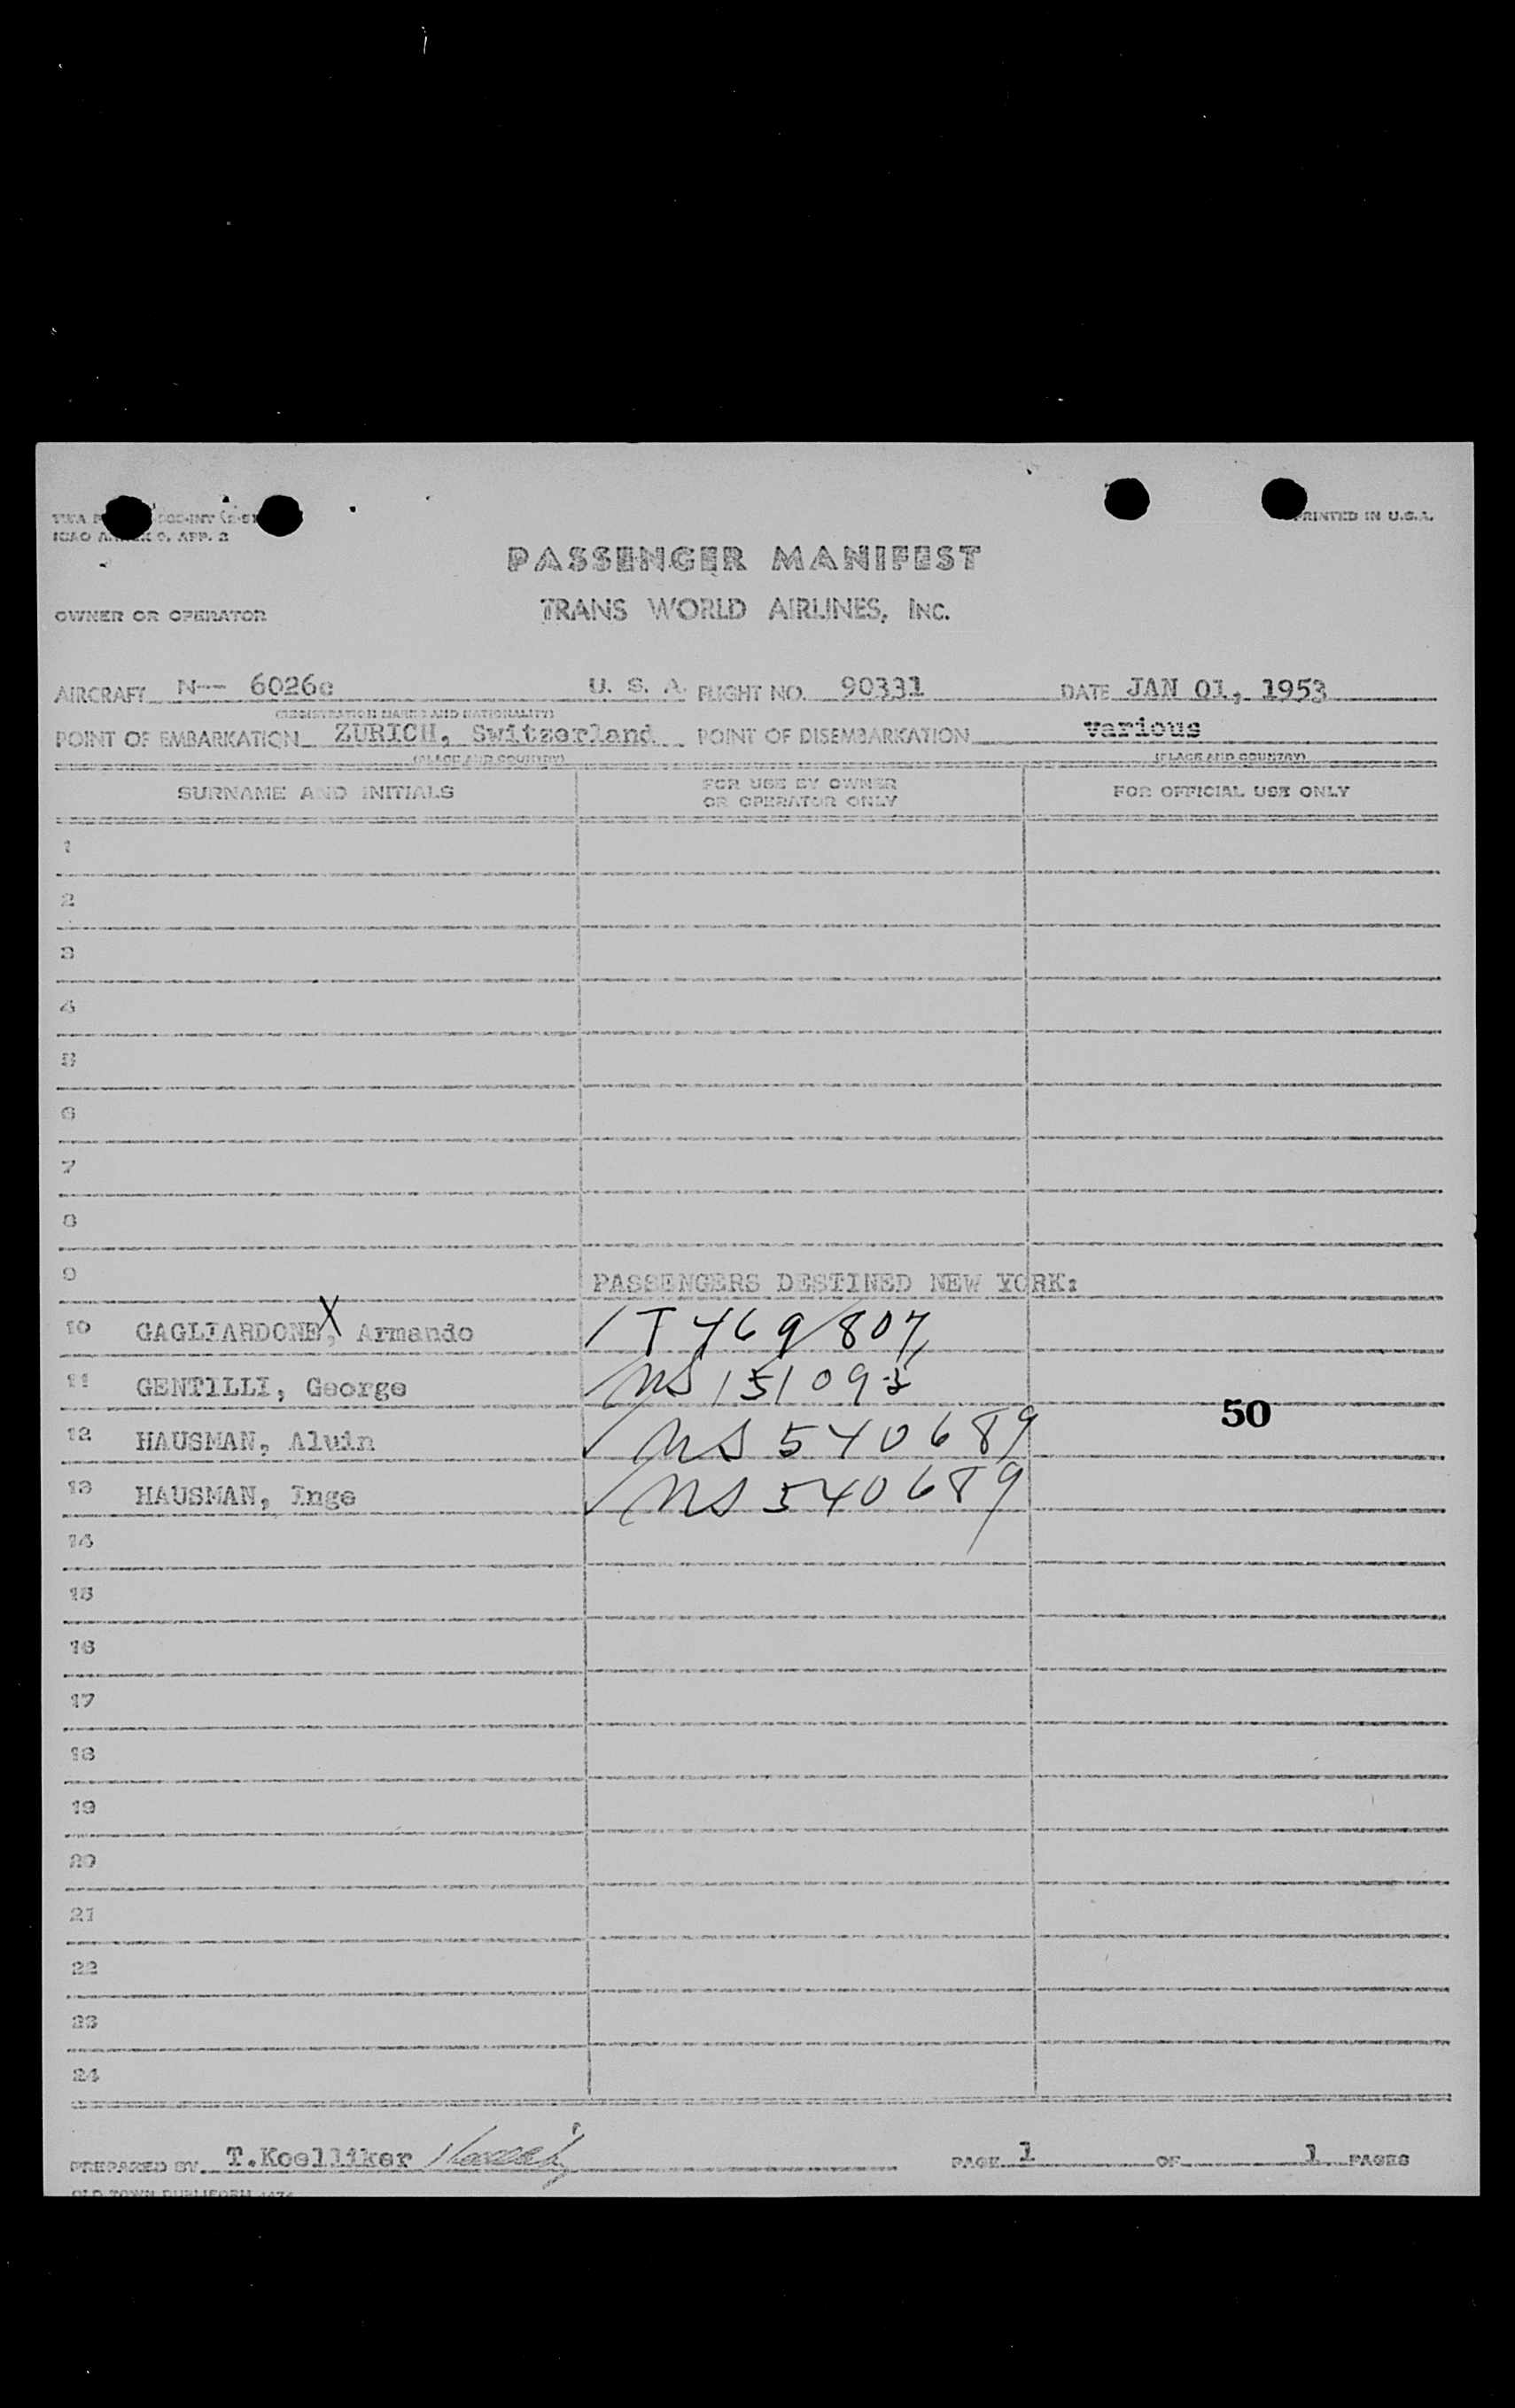 ICAO ANNEX 9, APP. 2
PRINTED IN U.S.A.
PASSENGER MANIFEST
OWNER OR OPERATOR TRANS WORLD AIRLINES, INC.
AIRCRAFT N-- 6026c U. S. A. FLIGHT NO. 90331 DATE JAN 01, 1953
(REGISTRATION MARKS AND NATIONALITY)
POINT OF EMBARKATION ZURICH, Switzerland POINT OF DISEMBARKATION various
(PLACE AND COUNTRY) (PLACE AND COUNTRY)
SURNAME AND INITIALS FOR USE BY OWNER OR OPERATOR ONLY FOR OFFICIAL USE ONLY
1
2
3
4
5
6
7
8
9 PASSENGERS DESTINED NEW YORK:
10 GAGLIARDONE, X Armando IT 469807
11 GENTILLI, George
12 HAUSMAN, Alwin NS 540689
50
13 HAUSMAN, Inge NS 540689
14
15
16
17
18
19
20
21
22
23
24
PREPARED BY T.Koelliker PAGE 1 OF 1 PAGES